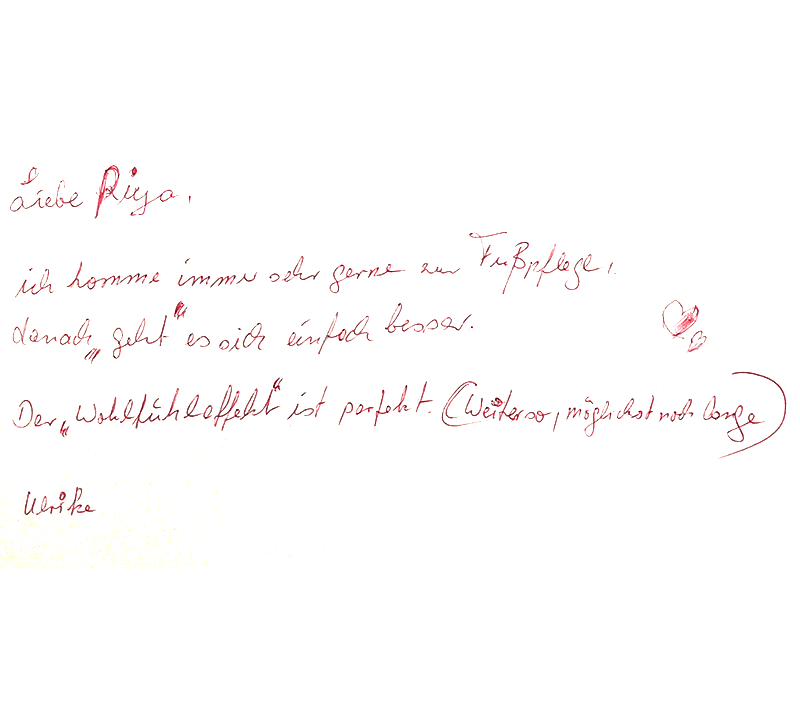 Liebe Riya,
ich komme immer sehr gerne zur Fußpflege,
danach „geht" es sich einfach besser.
Der „Wohlfühleffekt" ist perfekt. (Weiter so, möglichst noch lange)
Ulrike